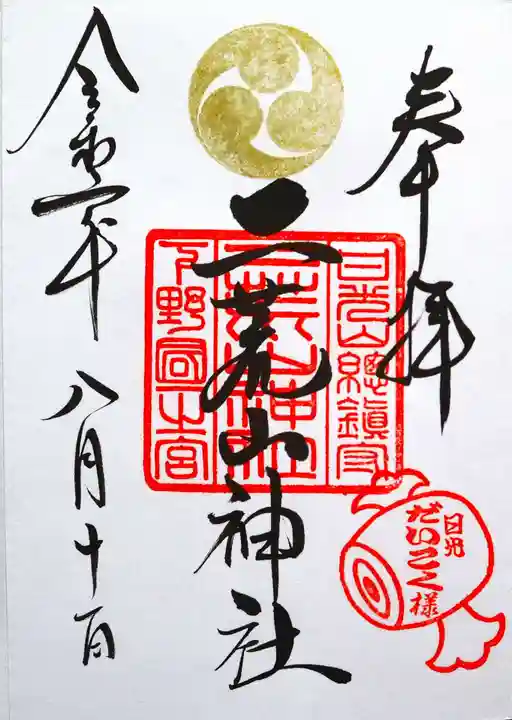 奉拝
日光
だいこく様
日光山總鎮守
二荒山神社
下野国一之宮
二荒山神社
令和二年 八月十一日